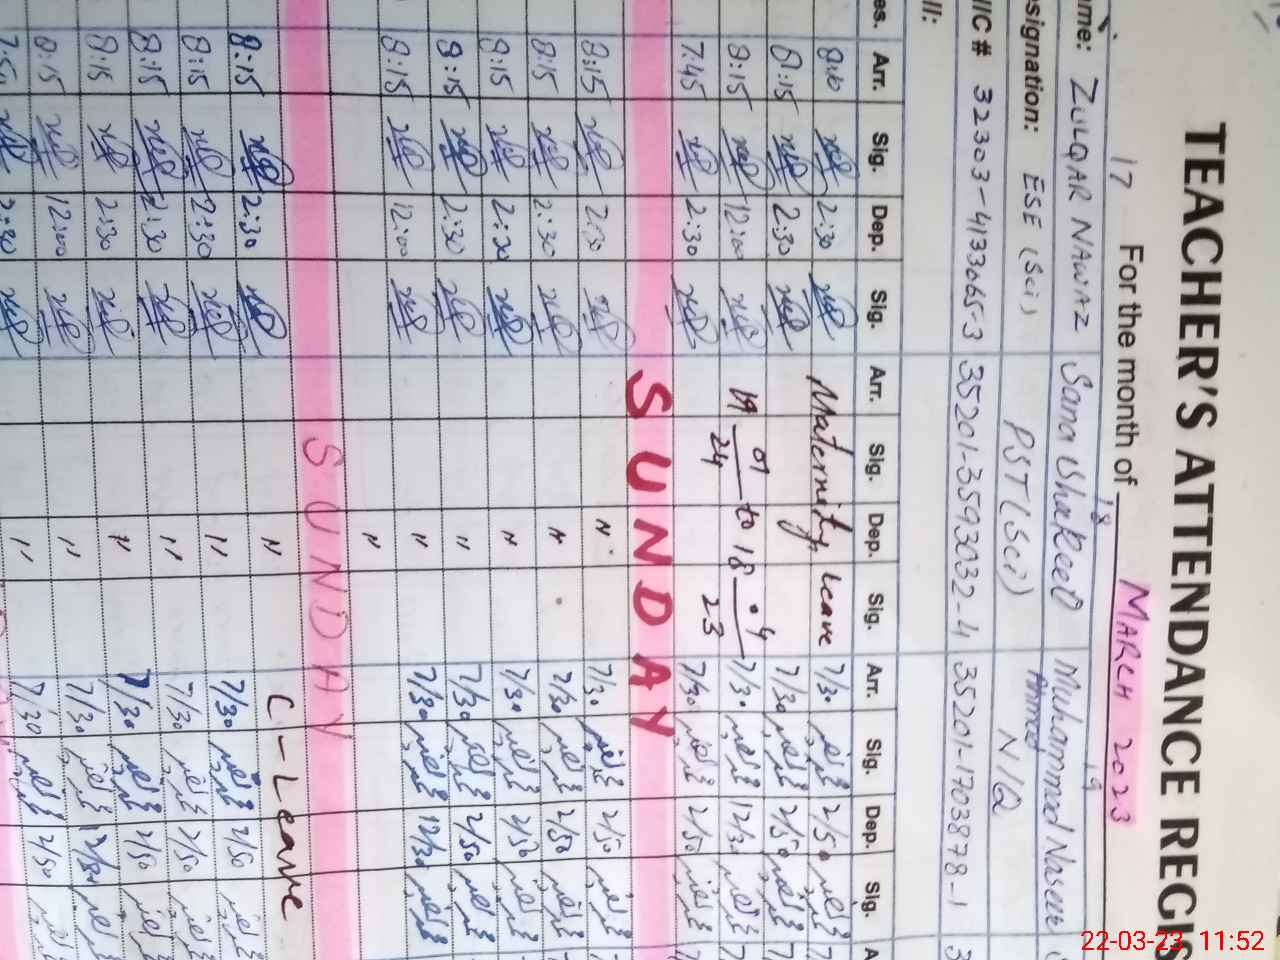 TEACHER'S ATTENDANCE REGIS
17 For the month of MARCH 2023
18 19
ame: ZULQAR NAWAZ Sana Shakeel Muhammad Naseer
Ahmed
esignation: ESE (Sci) PST (Sci) N/Q
IC # 32303-4133065-3 35201-3593032-4 35201-1703878-1 3
ll:
es. Arr. Sig. Dep. Sig. Arr. Sig. Dep. Sig. Arr. Sig. Dep. Sig. A
8:10 2:30 Maternity Leave 7/30 2/50 7
8:15 2:30 7/30 2/50 7
8:15 12:00 19 01 24 to 18 4 23 7/30 12/30 7
7:45 2:30 7/30 2/50 7
SUNDAY
8:15 2:30 " 7/30 2/50
8:15 2:30 " 7/30 2/50
8:15 2:30 " 7/30 2/50
8:15 2:30 " 7/30 2/50
8:15 12:00 " 7/30 12/30
"
SUNDAY
8:15 2:30 " C-Leave
8:15 2:30 " 7/30 2/50
8:15 2:30 " 7/30 2/50
8:15 2:30 " 7/30 2/50
8:15 12:00 " 7/30 12/30
2:30 " 7/30 2/50
22-03-23 11:52